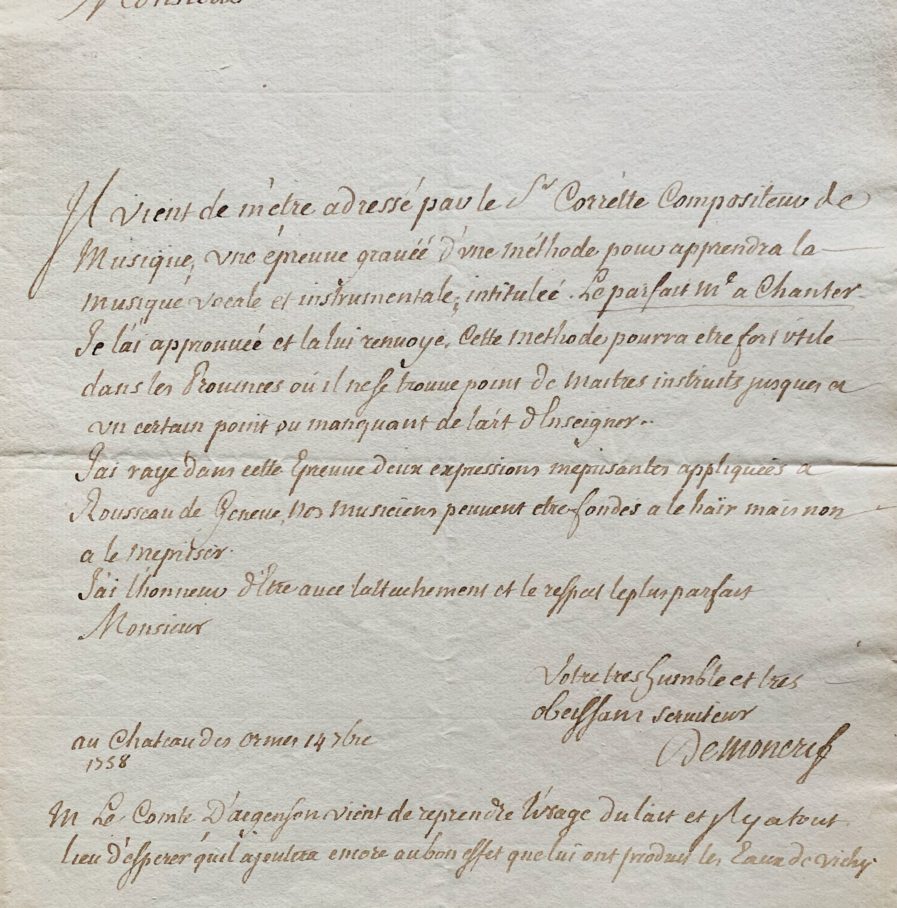 Monsieur
Il vient de m'étre adressé par le Sr Corrétte Compositeur de
Musique, vne épreuve gravéé d'vne méthode pour apprendra la
musique vocale et instrumentale, intituleé. Le parfait Me a Chanter.
Je l'ai approuvéé et la lui renvoye. Cette methode pourra etre fort vtile
dans les Provinces où il ne se trouve point de maitres instruits jusques a
vn certain point ou manquant de l'art d'Enseigner..
J'ai rayé dans cette Epreuve deux expressions méprisantes appliquées a
Rousseau de Geneve, nos musiciens peuvent etre fondés a le haïr mais non
a le mepriser.
J'ai l'honneur d'Etre avec l'attachement et le respect le plus parfait
Monsieur
Votre tres humble et tres
obeissant serviteur
De Moncrif
au Chateau des ormes 14 7bre
1758
M Le Comte D'argenson vient de reprendre l'vsage du lait et Il y a tout
lieu d'esperer qu'il ajoutera encore au bon effet que lui ont produit les Eaux de vichy